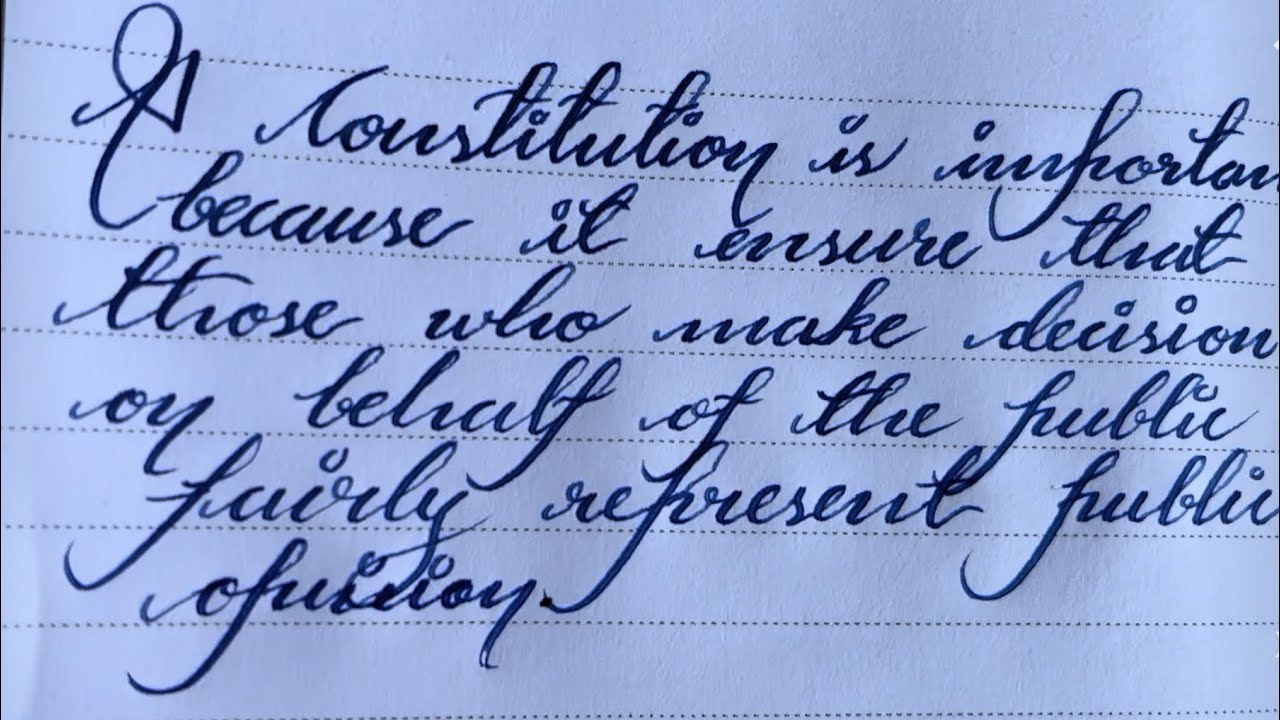 A Constitution is importan
because it ensure that
those who make decision
on behalf of the public
fairly represent public
opinion.